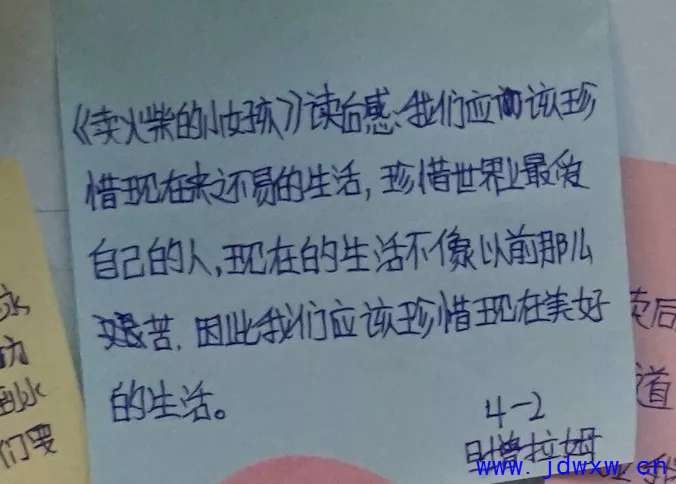 《卖火柴的小女孩》读后感:我们应该珍
惜现在来之不易的生活,珍惜世界上最爱
自己的人,现在的生活不像以前那么
艰苦,因此我们应该珍惜现在美好
的生活。
4-2
增拉姆
www.jdwxw.cn
们要
到
卖后
道